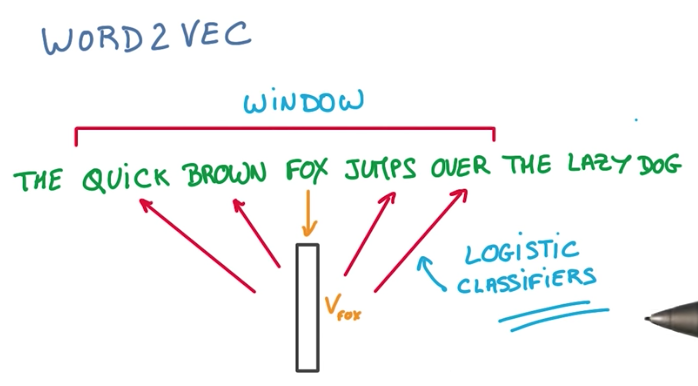 WORD2VEC
WINDOW
THE QUICK BROWN FOX JUMPS OVER THE LAZY DOG
LOGISTIC
CLASSIFIERS
V FOX